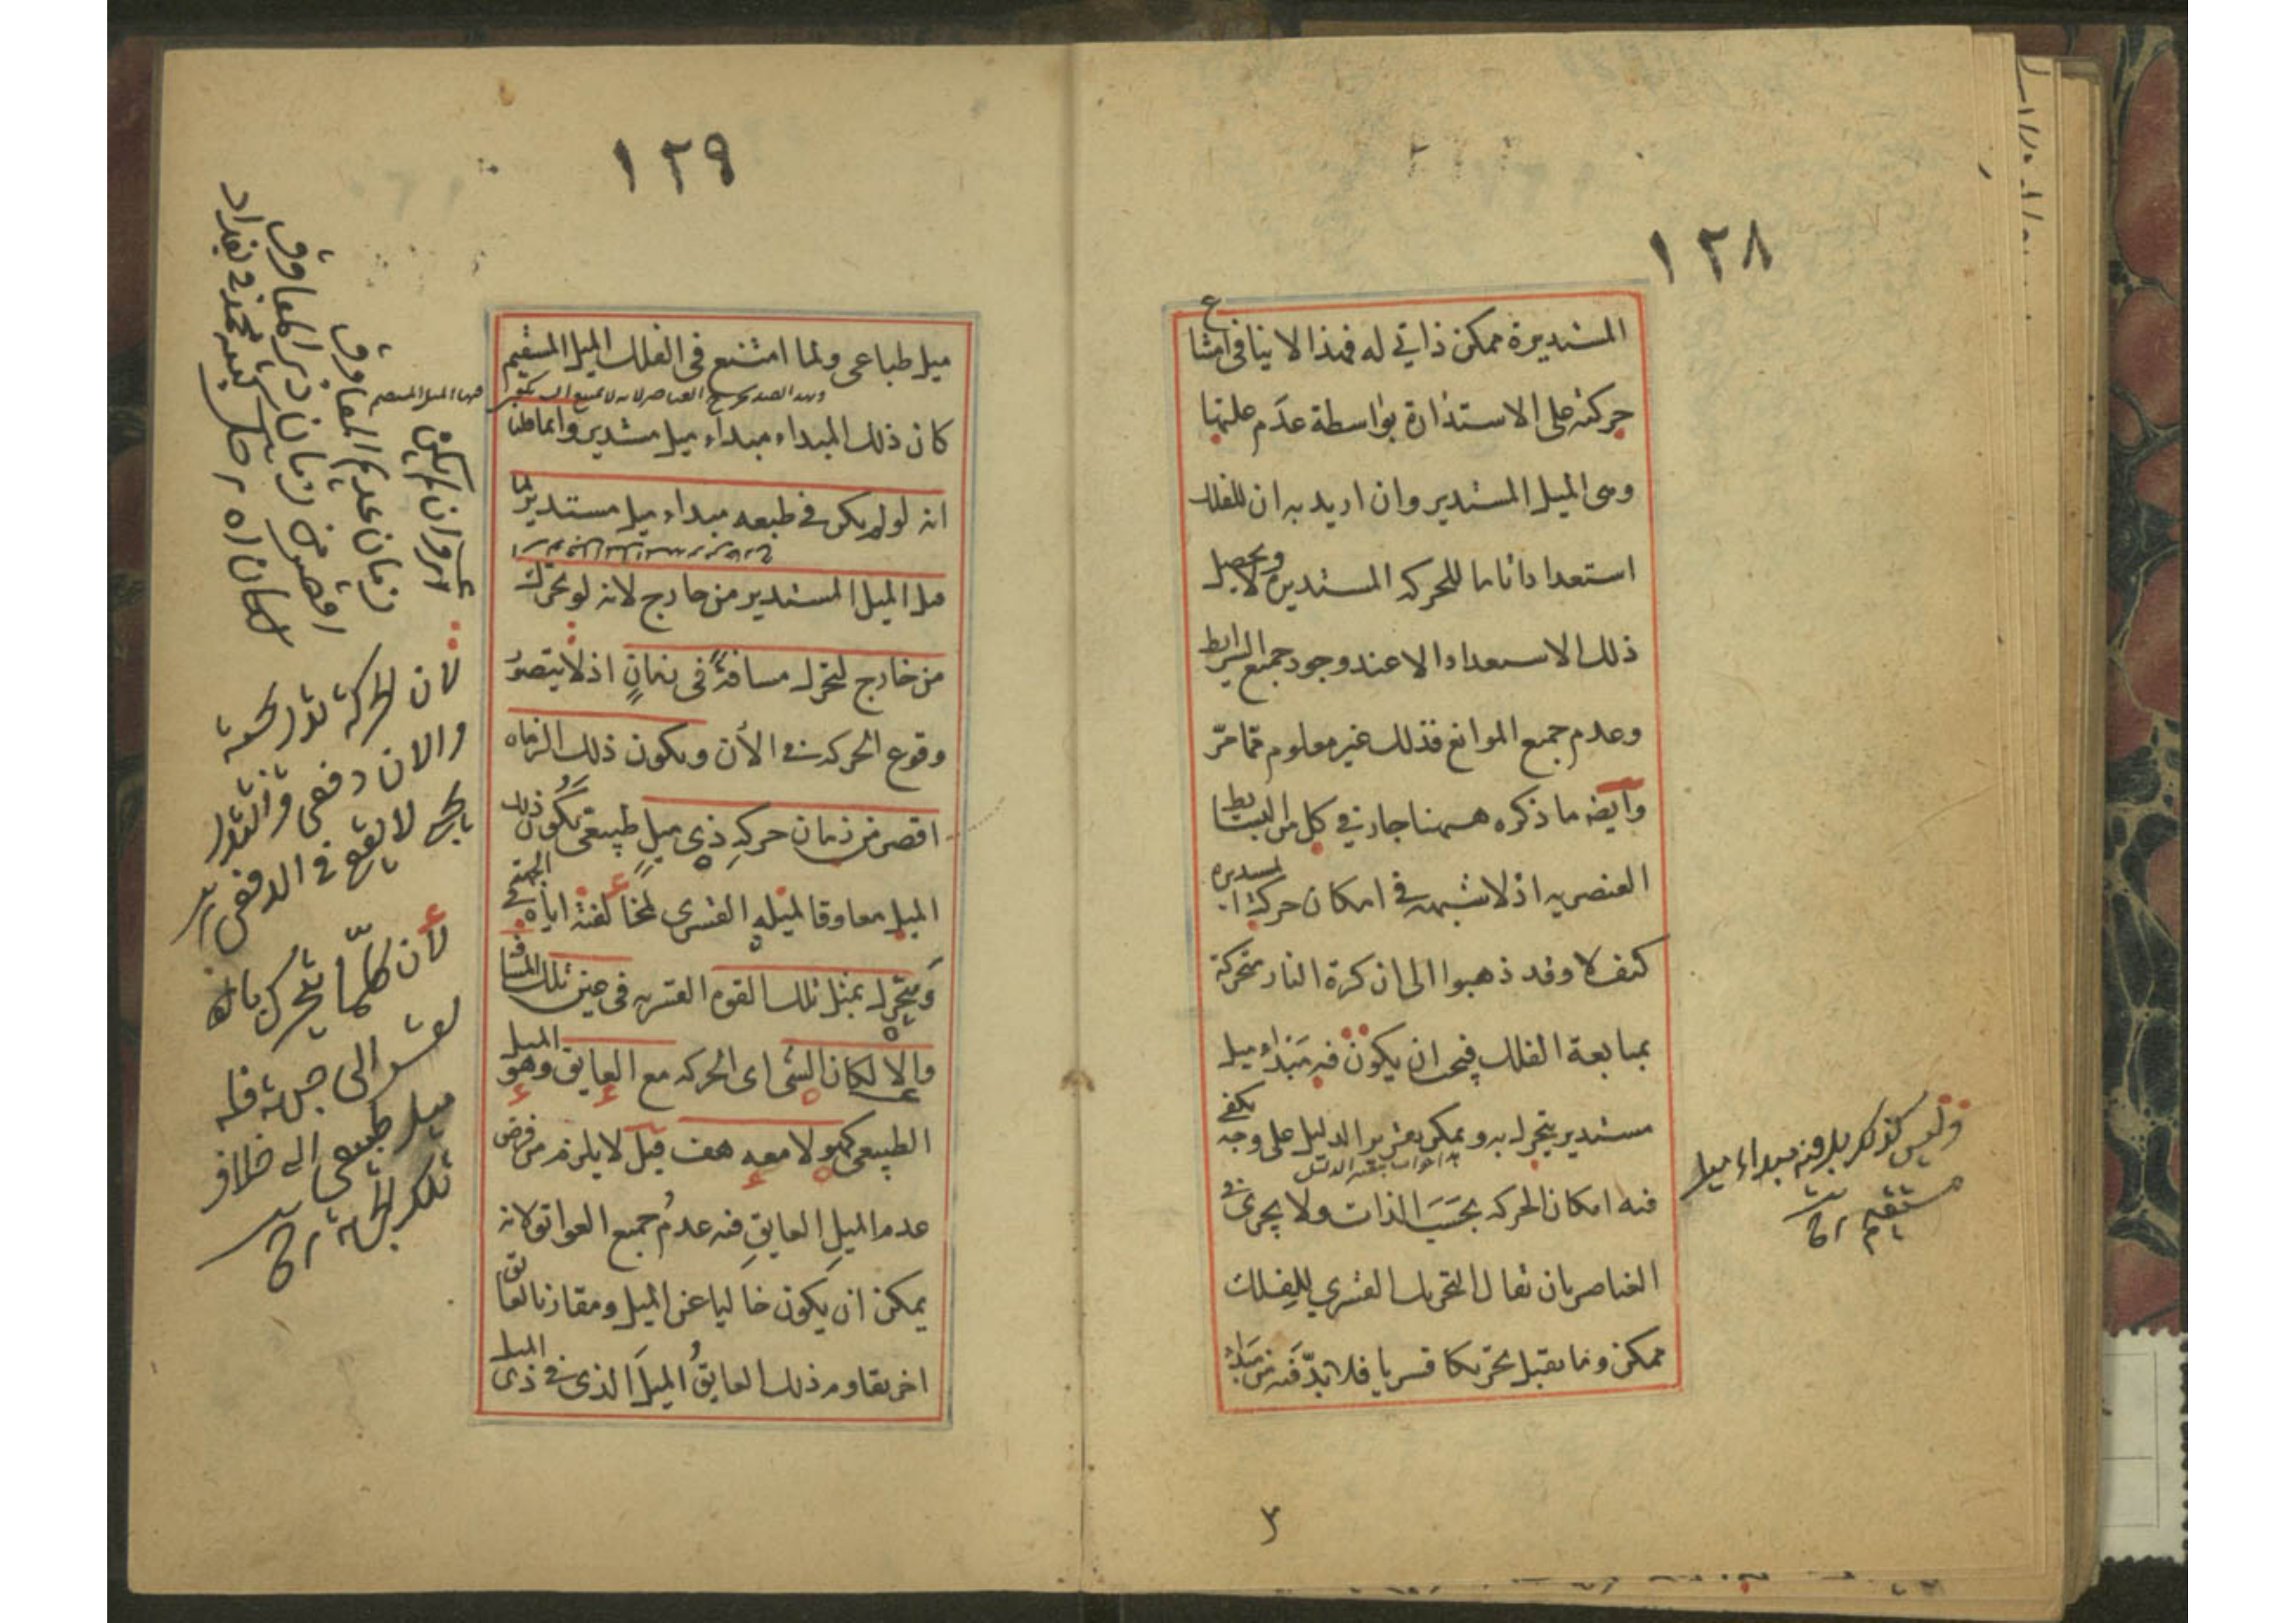 ١٢٨
المستديرة ممكن ذاتي له فهذا لا ينافي امتناع
حركته على الاستدارة بواسطة عدم علتها
وهى الميل المستدير وان اريد به ان للفلك
استعدادا تاما للحركه المستديرة ولا يحصل
ذلك الاستعداد الا عند وجود جميع الشرايط
وعدم جميع الموانع فذلك غير معلوم مما مرّ
وايضه ما ذكره ههنا جار في كل من البسائط
العنصريه اذ لا شبهه في امكان حركتها المستديره
كيف لا وقد ذهبوا الى ان كرة النار متحركة
بمتابعة الفلك فيجب ان يكون فيه مبداء ميل
مستدير يتحرك به ويمكن تقرير الدليل على وجه يكفي
فيه امكان الحركه بحسب الذات ولا يجرى في
العناصر بان يقال التحريك القسري للفلك
ممكن وما يقبل تحريكا قسريا فلا بدّ فيه من مبداء
وليس كذلك بل فيه مبداء ميل
مستقيم
٣
١٢٩
ميل طباعى ولما امتنع فى الفلك الميل المستقيم
كان ذلك المبداء مبداء ميل مستدير وانما قلنا
انه لو لم يكن في طبعه مبداء ميل مستدير لما
قبل الميل المستدير من خارج لانه لو تحرك
من خارج لتحرك مسافةً فى زمانٍ اذ لا يتصور
وقوع الحركه في الأن ويكون ذلك الزمان
اقصر من زمان حركهِ ذى ميلٍ طبيعى يكون ذلك
الميل معاوقا لميله القسرى لمخالفته اياه في الجهة
ويتحرك بمثل تلك القوه القسريه فى عين تلك المسافة
والا لكان الشئ اى الحركه مع العايق وهو الميل
الطبيعى كهو لا معه هف قيل لا يلزم من فرض
عدم الميلِ العايقِ فيه عدمُ جميع العوائق لانه
يمكن ان يكون خاليا عن الميل ومقارنا لعائق
اخر يقاوم ذلك العايقُ الميلَ الذى في ذى الميل
زمان عديم المعاوق
لان الحركة تدريجية
والان دفعى والتدر
يجي لا يقع في الدفعى
لأن كلّما يتحرك بالـ
قسر الى جهة فله
ميل طبيعى الى خلاف
تلك الجهة